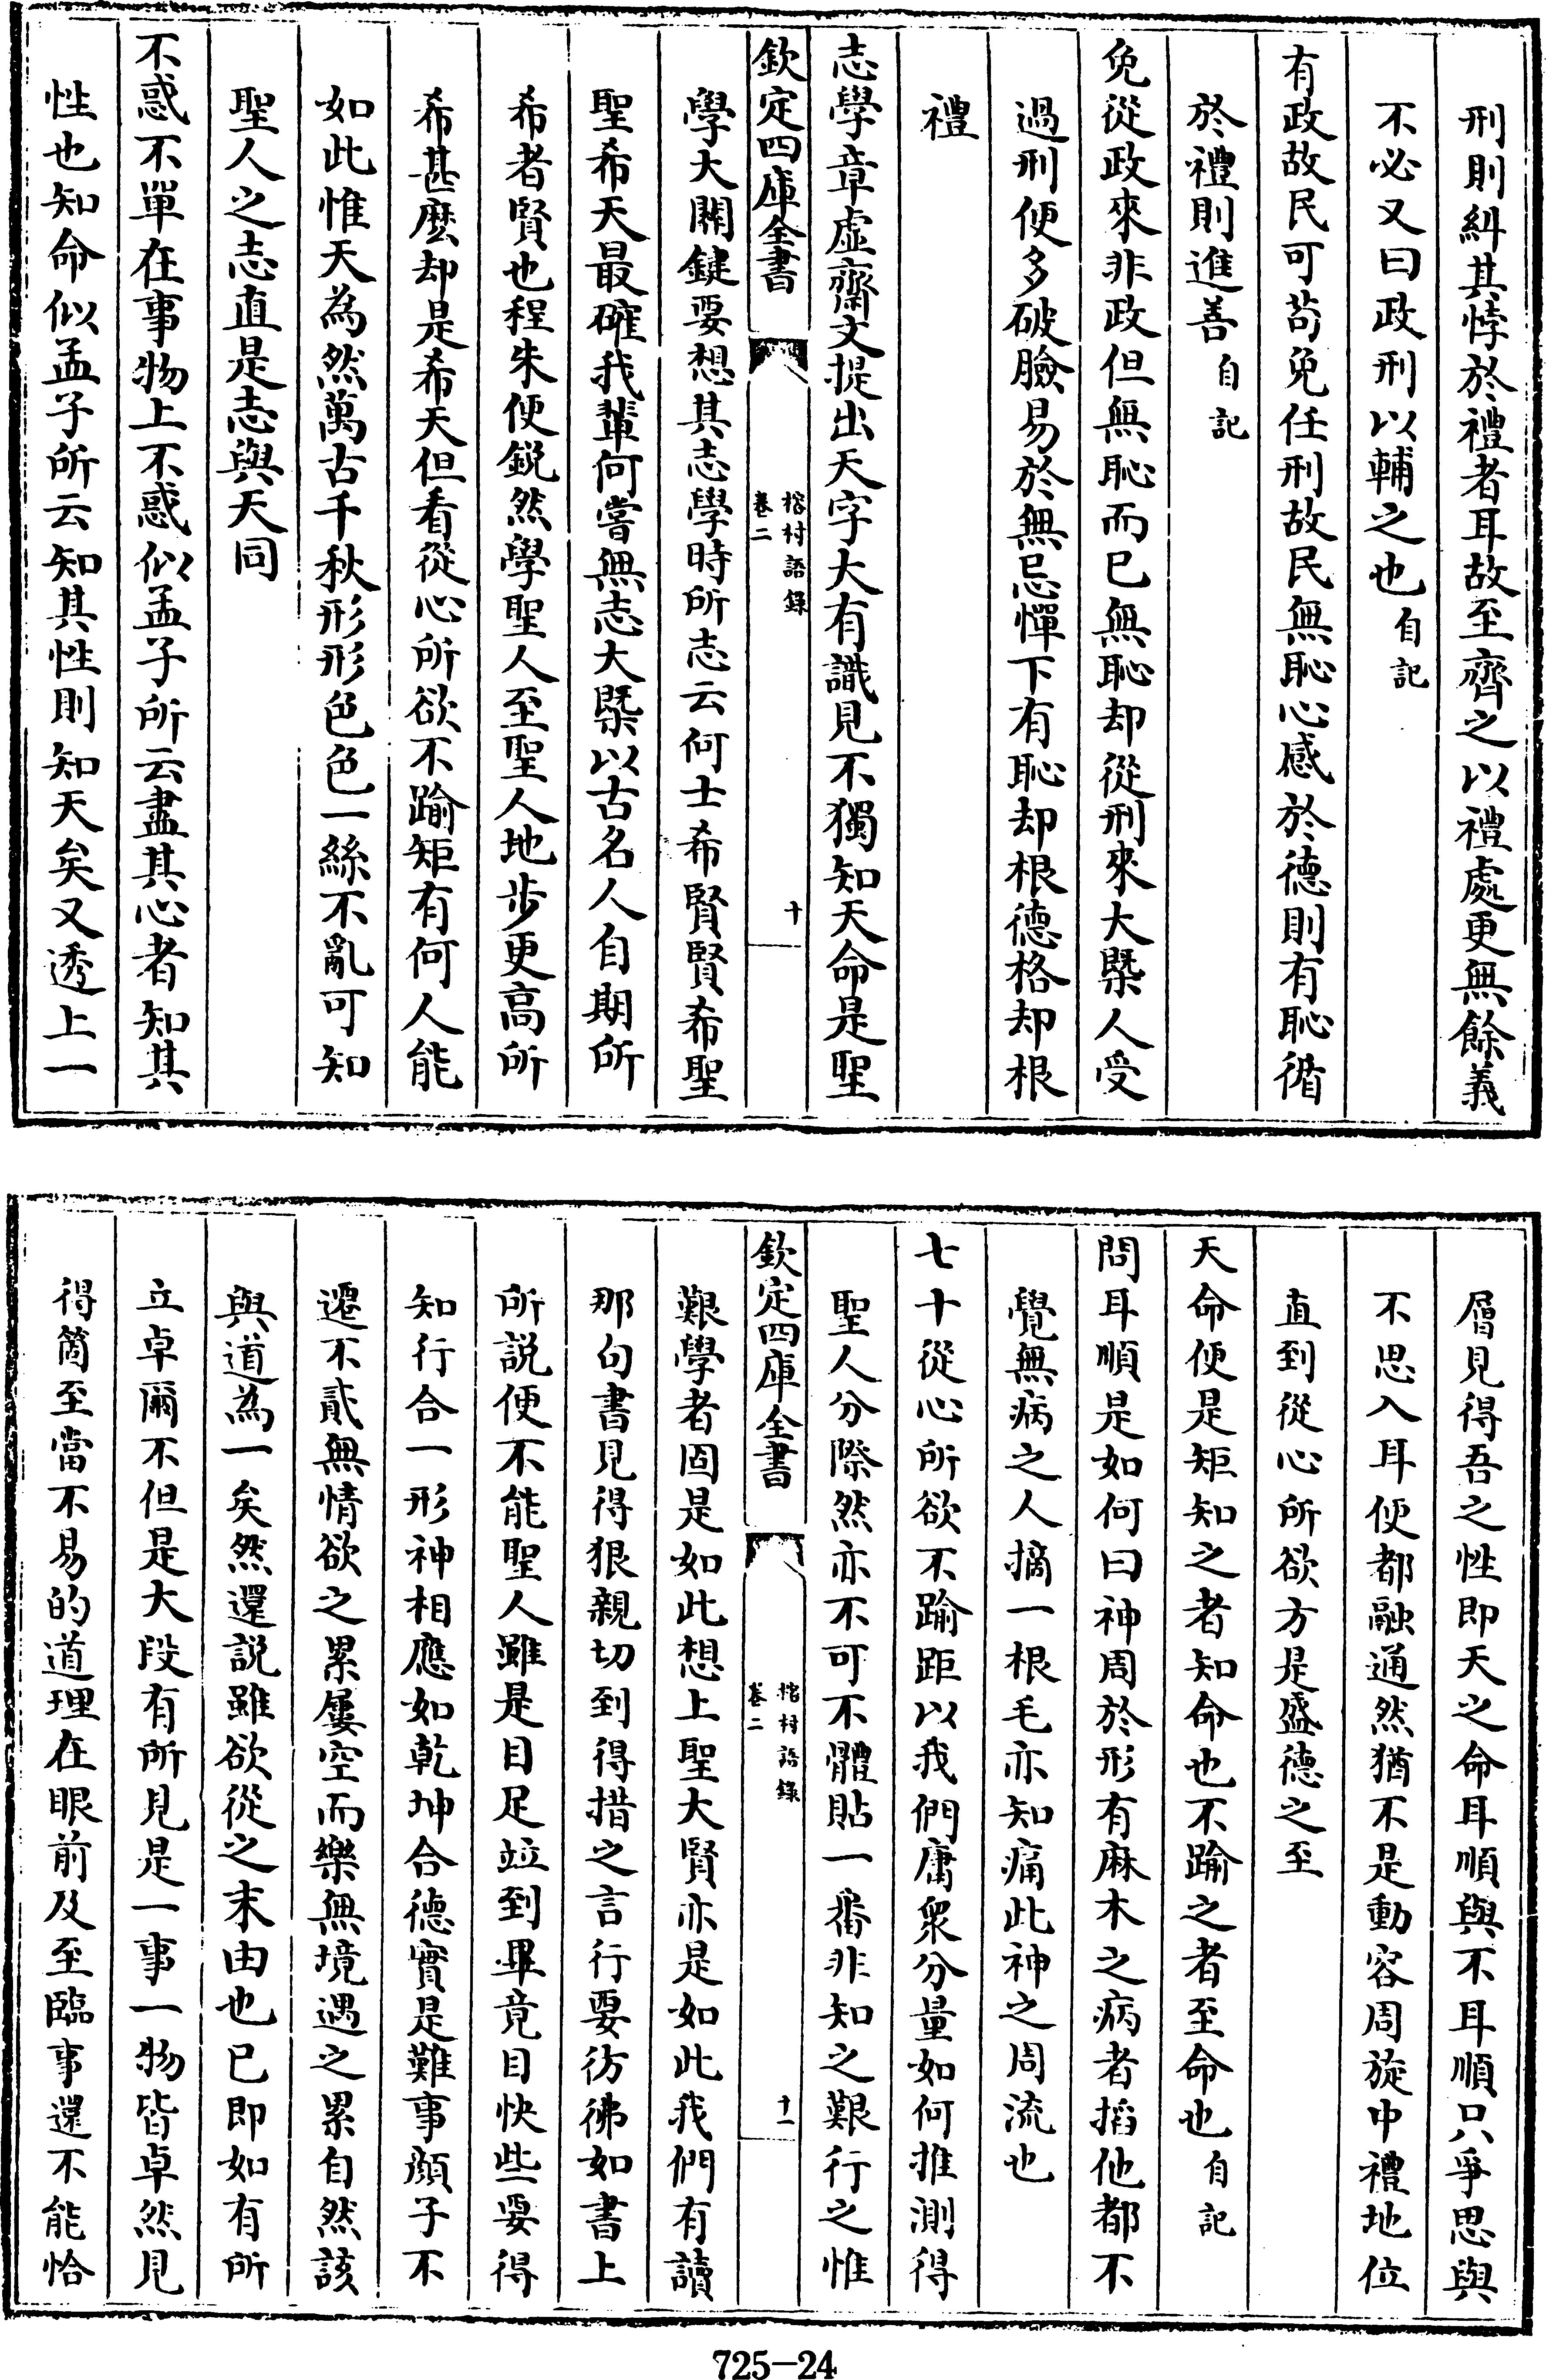 刑則糾其悖於禮者耳故至齊之以禮處更無餘義
不必又曰政刑以輔之也自記
有政故民可苟免任刑故民無恥心感於德則有恥循
於禮則進善自記
免從政來非政但無恥而已無恥却從刑來大槩人受
過刑便多破臉易於無忌憚下有恥却根德格却根
禮
志學章虛齋文提出天字大有識見不獨知天命是聖
欽定四庫全書
榕村語錄
卷二
十
學大關鍵要想其志學時所志云何士希賢賢希聖
聖希天最確我輩何嘗無志大槩以古名人自期所
希者賢也程朱便鋭然學聖人至聖人地步更高所
希甚麽却是希天但看從心所欲不踰矩有何人能
如此惟天為然萬古千秋形形色色一絲不亂可知
聖人之志直是志與天同
不惑不單在事物上不惑似孟子所云盡其心者知其
性也知命似孟子所云知其性則知天矣又透上一
層見得吾之性即天之命耳順與不耳順只爭思與
不思入耳便都融通然猶不是動容周旋中禮地位
直到從心所欲方是盛德之至
天命便是矩知之者知命也不踰之者至命也自記
問耳順是如何曰神周於形有麻木之病者搯他都不
覺無病之人摘一根毛亦知痛此神之周流也
七十從心所欲不踰距以我們庸衆分量如何推測得
聖人分際然亦不可不體貼一番非知之艱行之惟
欽定四庫全書
榕村語錄
卷二
十一
艱學者固是如此想上聖大賢亦是如此我們有讀
那句書見得狠親切到得措之言行要彷彿如書上
所説便不能聖人雖是目足竝到畢竟目快些要得
知行合一形神相應如乾坤合德實是難事顔子不
遷不貳無情欲之累屢空而樂無境遇之累自然該
與道為一矣然還説雖欲從之末由也已即如有所
立卓爾不但是大段有所見是一事一物皆卓然見
得箇至當不易的道理在眼前及至臨事還不能恰
725-24